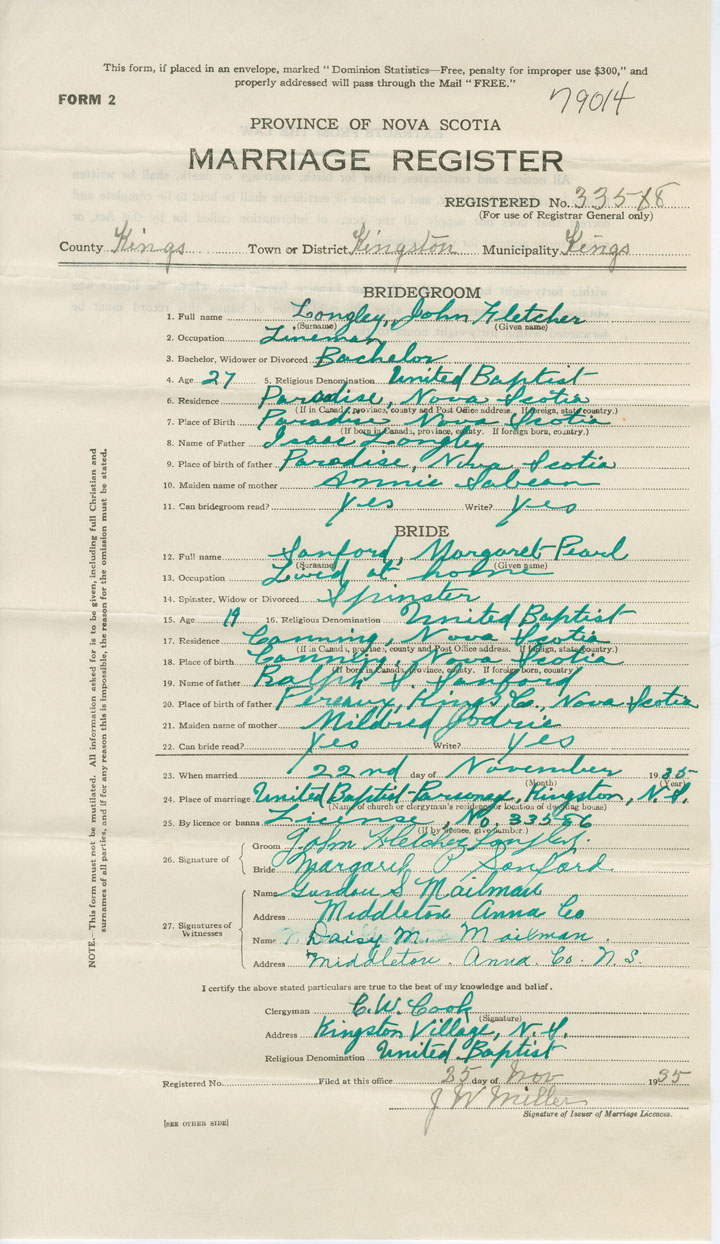 This form, if placed in an envelope, marked "Dominion Statistics—Free, penalty for improper use $300," and
properly addressed will pass through the Mail "FREE."
FORM 2
79014
PROVINCE OF NOVA SCOTIA
MARRIAGE REGISTER
REGISTERED No. 33588
(For use of Registrar General only)
County Kings Town or District Kingston Municipality Kings
BRIDEGROOM
1. Full name Longley, John Fletcher
(Surname) (Given name)
2. Occupation Lineman
3. Bachelor, Widower or Divorced Bachelor
4. Age 27 5. Religious Denomination United Baptist
6. Residence Paradise, Nova Scotia
(If in Canada, province, county and Post Office address. If foreign, state country.)
7. Place of Birth Paradise Nova Scotia
(If born in Canada, province, county. If foreign born, country.)
8. Name of Father Isaac Longley
9. Place of birth of father Paradise, Nova Scotia
10. Maiden name of mother Annie Sabean
11. Can bridegroom read? Yes Write? Yes
BRIDE
12. Full name Sanford, Margaret Pearl
(Surname) (Given name)
13. Occupation Lived at home
14. Spinster, Widow or Divorced Spinster
15. Age 19 16. Religious Denomination United Baptist
17. Residence Canning, Nova Scotia
(If in Canada, province, county and Post Office address. If foreign, state country.)
18. Place of birth Canning, Nova Scotia
(If born in Canada, province, county. If foreign born, country)
19. Name of father Ralph S. Sanford
20. Place of birth of father Pereaux, Kings Co., Nova Scotia
21. Maiden name of mother Mildred Jodrie
22. Can bride read? Yes Write? Yes
23. When married 22nd day of November 1935
(Month) (Year)
24. Place of marriage United Baptist Parsonage, Kingston, N.S.
(Name of church or clergyman's residence or location of dwelling house)
25. By licence or banns License, No. 33586
(If by license, give number.)
26. Signature of
Groom John Fletcher Longley
Bride Margaret P Sanford
27. Signatures of Witnesses
Name Gurdon S Mailman
Address Middleton Anna Co
Name Daisy M. Mailman.
Address Middleton. Anna. Co. N.S.
I certify the above stated particulars are true to the best of my knowledge and belief.
Clergyman C. W. Cook
(Signature)
Address Kingston Village, N.S.
Religious Denomination United Baptist
Registered No. Filed at this office 25 day of Nov 1935
J. W. Miller
Signature of Issuer of Marriage Licences.
[SEE OTHER SIDE]
NOTE.—This form must not be mutilated. All information asked for is to be given, including full Christian and
surnames of all parties, and if for any reason this is impossible, the reason for the omission must be stated.